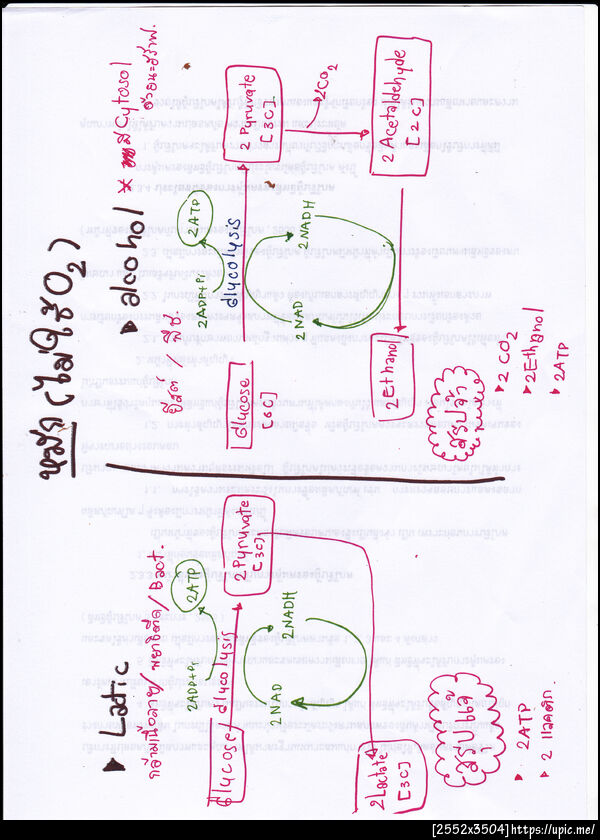 หมัก (ไม่ใช้ O2)
▸ Lactic
กล้ามเนื้อลาย/พยาธิตืด/Bact.
Glucose
Glycolysis
2ADP+Pi
2ATP
2 Pyruvate
[3C]
2NAD
2NADH
2Lactate
[3C]
สรุปได้
▸ 2ATP
▸ 2 แลคติก
▸ alcohol
* ที่ Cytosol
ยีสต์ / พืช
Glucose
[6C]
Glycolysis
2ADP+Pi
2ATP
2 Pyruvate
[3C]
2CO2
2 Acetaldehyde
[2C]
2NAD
2NADH
2Ethanol
สรุปได้
▸ 2 CO2
▸ 2Ethanol
▸ 2ATP
[2552x3504]https://upic.me/